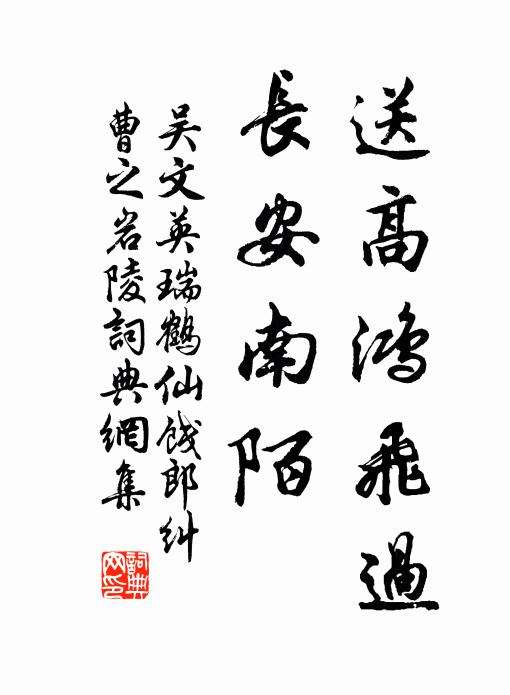 送高鸿飛過
長安南陌
吴文英瑞鶴仙餞郎糾
曹之岩陵詞典網集
詞典网印